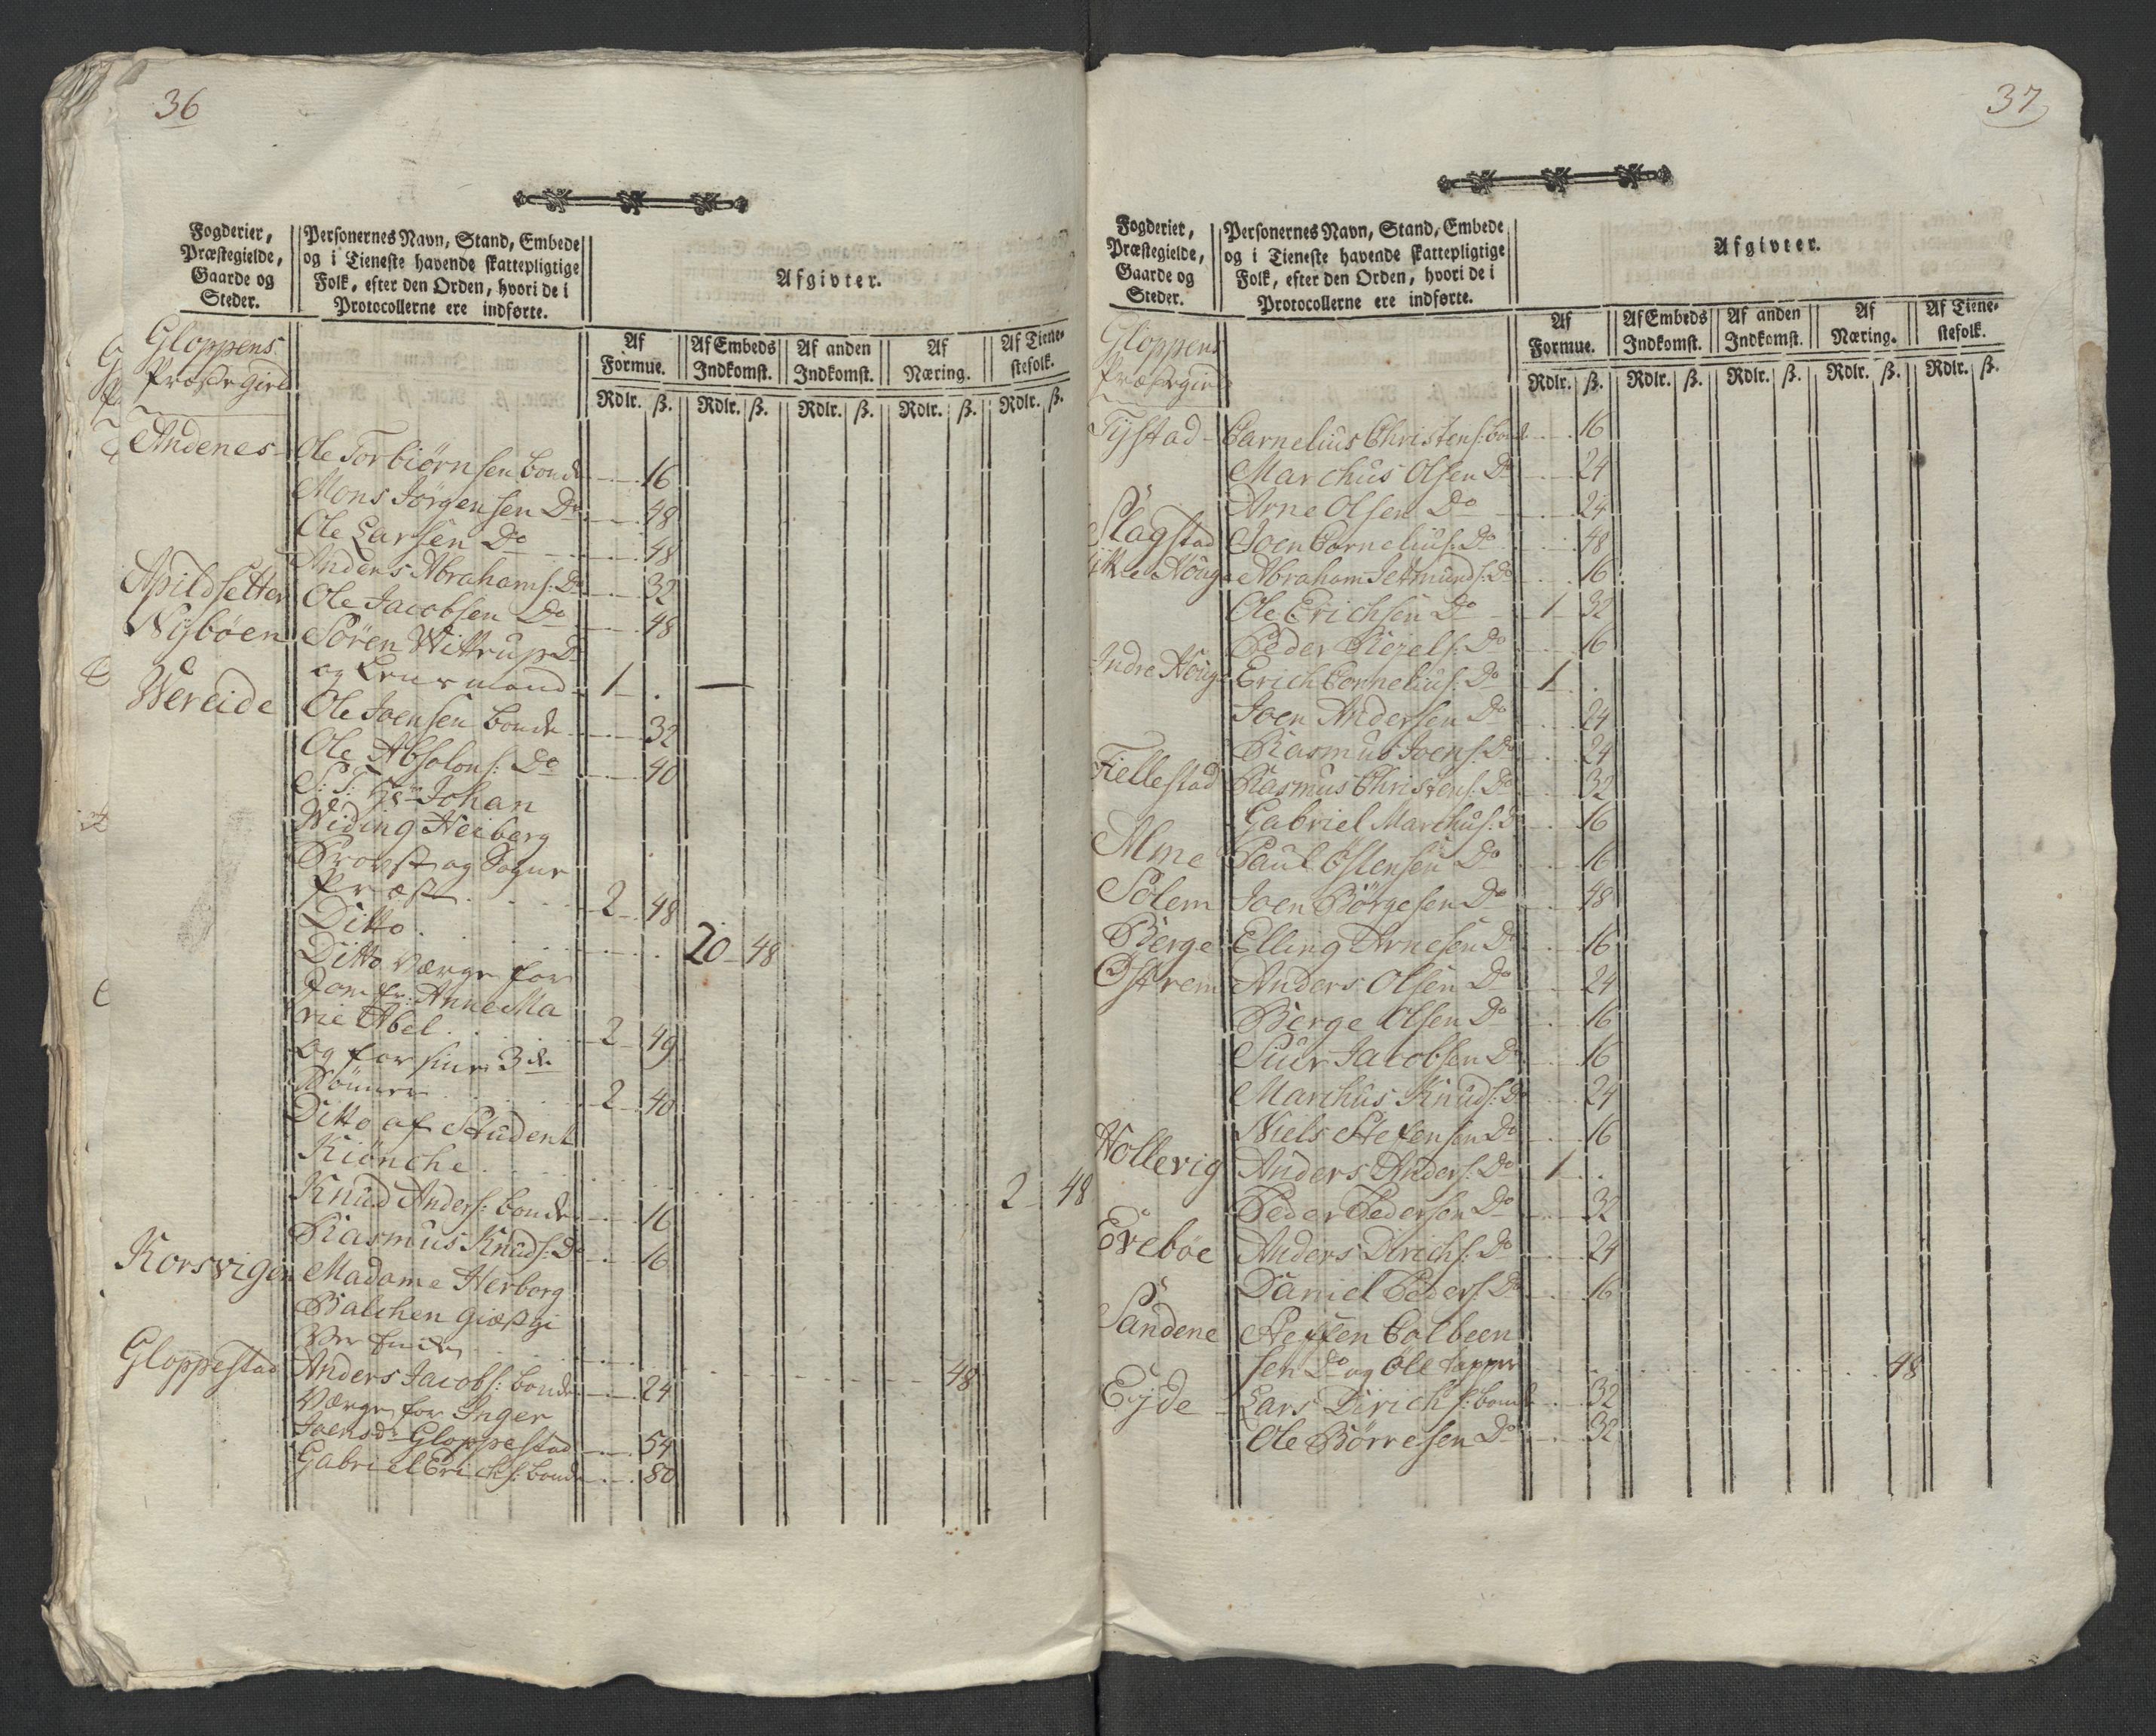 36
Fogderier, Præstegielde, Gaarde og Steder.
Personernes Navn, Stand, Embede og i Tieneste havende skattepligtige Folk, efter den Orden, hvori de i Protocollerne ere indførte.
Afgivter.
Af Formue. Af Embeds Indkomst. Af anden Indkomst. Af Næring. Af Tienestefolk.
Rdlr. ß. Rdlr. ß. Rdlr. ß. Rdlr. ß. Rdlr. ß.
Gloppens
Præstegield
Andenes Ole Torbiørnsen bonde 16
Mons Jørgensen Do 48
Ole Larsen Do 48
Anders Abrahams: Do 32
Apildsetter Ole Jacobsen Do 48
Nybøen Søren Wittrup Do
og Lensmand 1 .
Wereide Ole Joensen bonde 32
Ole Absolons: Do 40
S: T: Hr Johan
Widing Heiberg
Provst og Sogne
Præst 2 48
Ditto 20 48
Ditto Værge for
Jomfr: Anne Ma
rie Abel 2 49
og for sine 3de
Sønner 2 40
Ditto af Student
Kiönche 2 48
Knud Anders: bonde 16
Rasmus Knuds: Do 16
Korsvigen Madame Herborg
Balchen giæstgi
Verske 48
Gloppestad Anders Jacobs: bonde 24
Værge for Inger
Joensdr Gloppestad 54
Gabriel Erichs: bonde 80
37
Fogderier, Præstegielde, Gaarde og Steder.
Personernes Navn, Stand, Embede og i Tieneste havende skattepligtige Folk, efter den Orden, hvori de i Protocollerne ere indførte.
Afgivter.
Af Formue. Af Embeds Indkomst. Af anden Indkomst. Af Næring. Af Tienestefolk.
Rdlr. ß. Rdlr. ß. Rdlr. ß. Rdlr. ß. Rdlr. ß.
Gloppens
Præstegield
Tystad Carnelius Christens: bonde 16
Marchus Olsen Do 24
Arne Olsen Do 24
Slagstad Joen Cornelius: Do 48
Houge Abraham Jetmunds: Do 16
Ole Erichsen Do 1 32
Peder Do 16
Indre Houge Erich Cornelius: Do 1 .
Joen Andersen Do 24
Rasmus Joens: Do 24
Fiellestad Rasmus Christens: Do 32
Gabriel Marchus: Do 16
Alme Paul Østensen Do 16
Solem Joen Børgesen Do 48
Berge Elling Arnesen Do 16
Østrem Anders Olsen Do 24
Berge Olsen Do 16
Siur Jacobsen Do 16
Marchus Knuds: Do 24
Niels Stefensen Do 16
Hollevig Anders Anders: Do 1 .
Peder Pedersen Do 32
Evebøe Anders Dirichs: Do 24
Daniel Peders: Do 16
Sandene Steffen Colbeen
sen Do og Øle tapper 48
Eyde Lars Dirichs: bonde 32
Ole Børresen Do 32